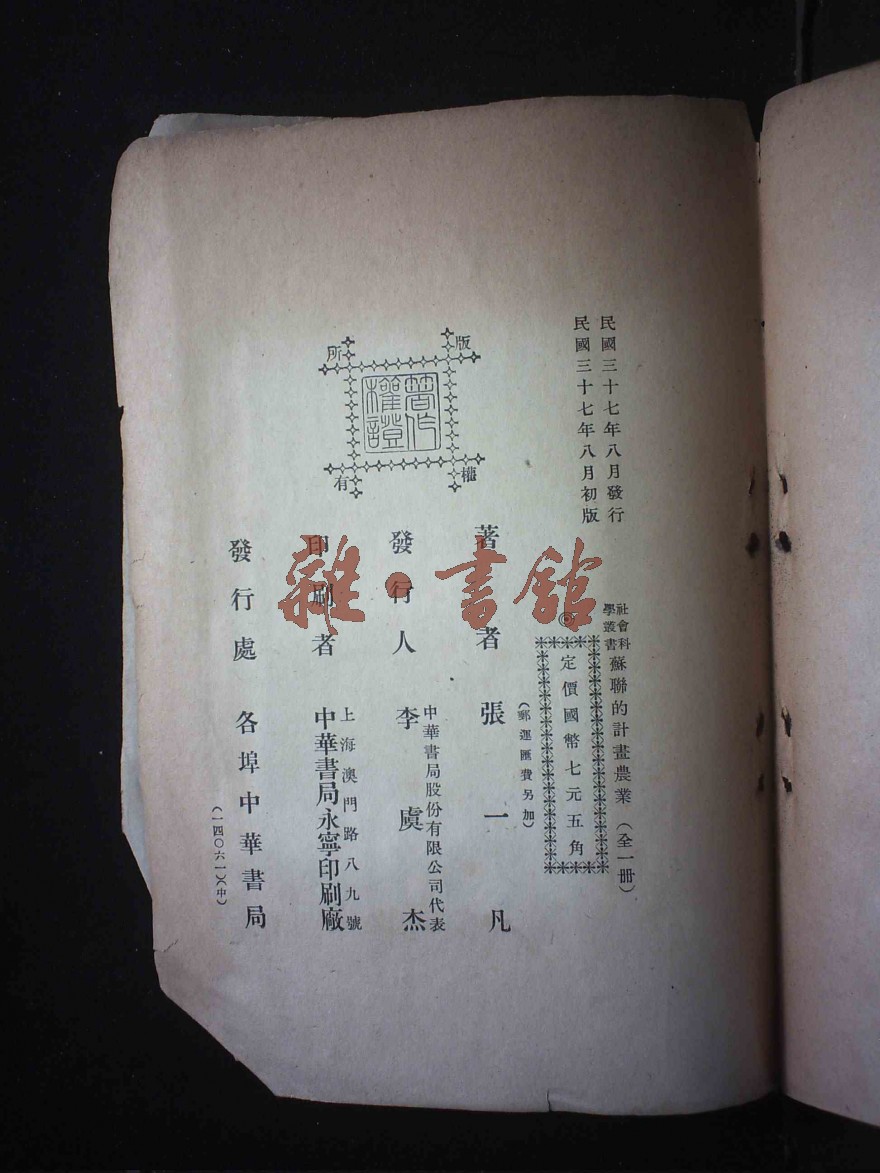 民國三十七年八月發行
民國三十七年八月初版
社會科學叢書
蘇聯的計畫農業（全一冊）
◎定價國幣七元五角
（郵運匯費另加）
著者 張一凡
發行人 中華書局股份有限公司代表
李虞杰
印刷者 上海澳門路八九號
中華書局永寧印刷廠
發行處 各埠中華書局
（一四〇六一）（中）
版權所有
著作權證
雜·書館